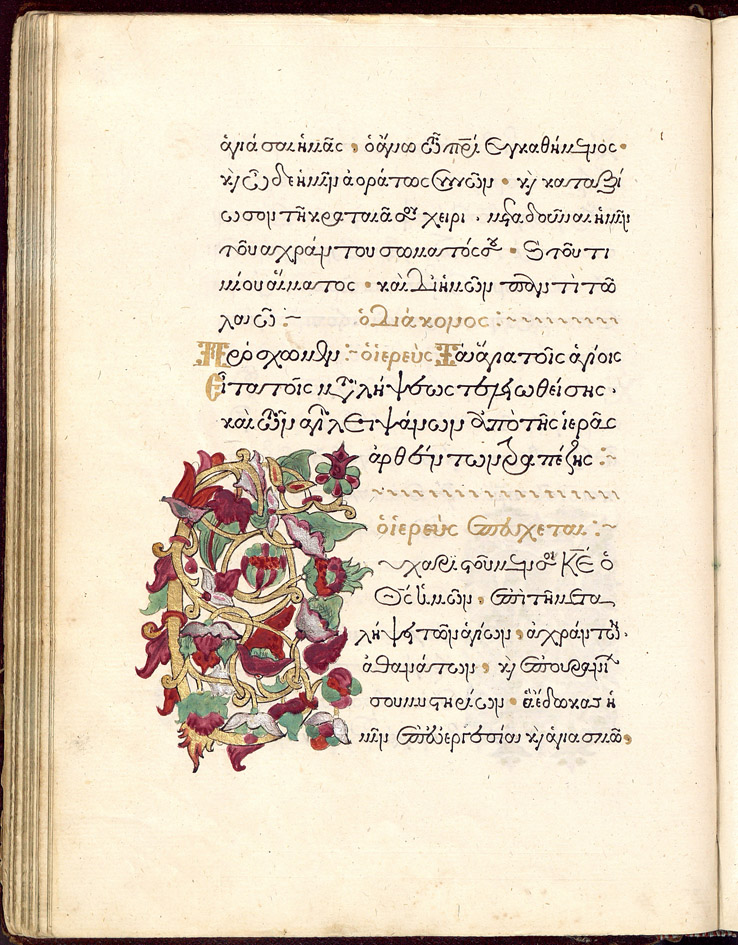 ἁγιάσαι ἡμᾶς, ὁ ἄνω τῷ πρὶ συγκαθήμενος·
κ ὧδε ἡμῖν ἀοράτως συνών· κ καταξί
ωσον τῇ κραταιᾷ σου χειρὶ, μεταδοῦναι ἡμῖν
τοῦ ἀχράντου σώματός σου· κ τοῦ τι
μίου αἵματος· καὶ δι ἡμῶν παντὶ τῷ
λαῷ:~ ὁ διάκονος:~
Πρόσχωμεν:~ ὁ ἱερεύς Τὰ ἅγια τοῖς ἁγίοις
Εἶτα τῆς μεταλήψεως τελειωθείσης·
καὶ τῶν ἁγίων λειψάνων ἀπὸ τῆς ἱερᾶς
ἀρθέντων τραπέζης:~
ὁ ἱερεὺς ἐπεύχεται:~
Εὐχαριστοῦμέν σοι Κε ὁ
Θς ἡμῶν, ἐπὶ τῇ μετα
λήψει τῶν ἁγίων, ἀχράντων,
ἀθανάτων, κ ἐπουρανί
σου μυστηρίων· ἃ ἔδωκας ἡ
μῖν ἐπ εὐεργεσίᾳ κ ἁγιασμῷ,